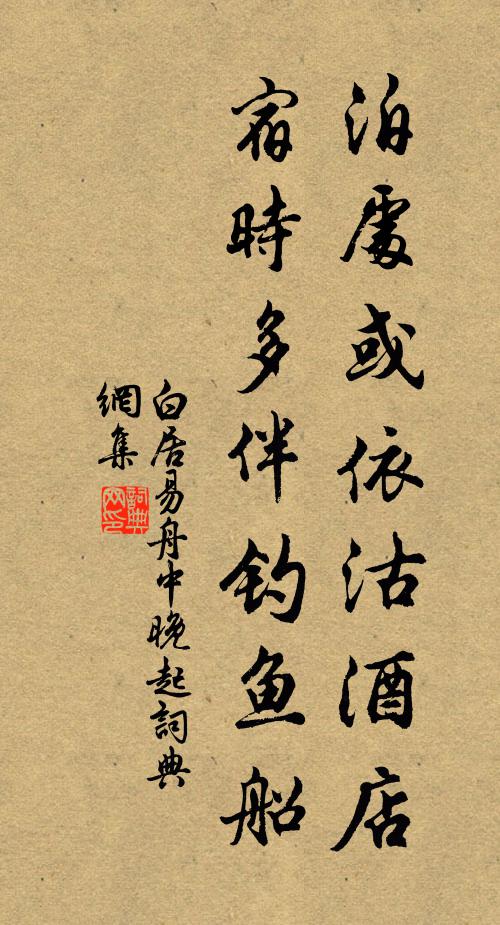 泊處或依沽酒店
宿時多伴钓鱼船
白居易舟中晚起詞典
網集
詞典
网印